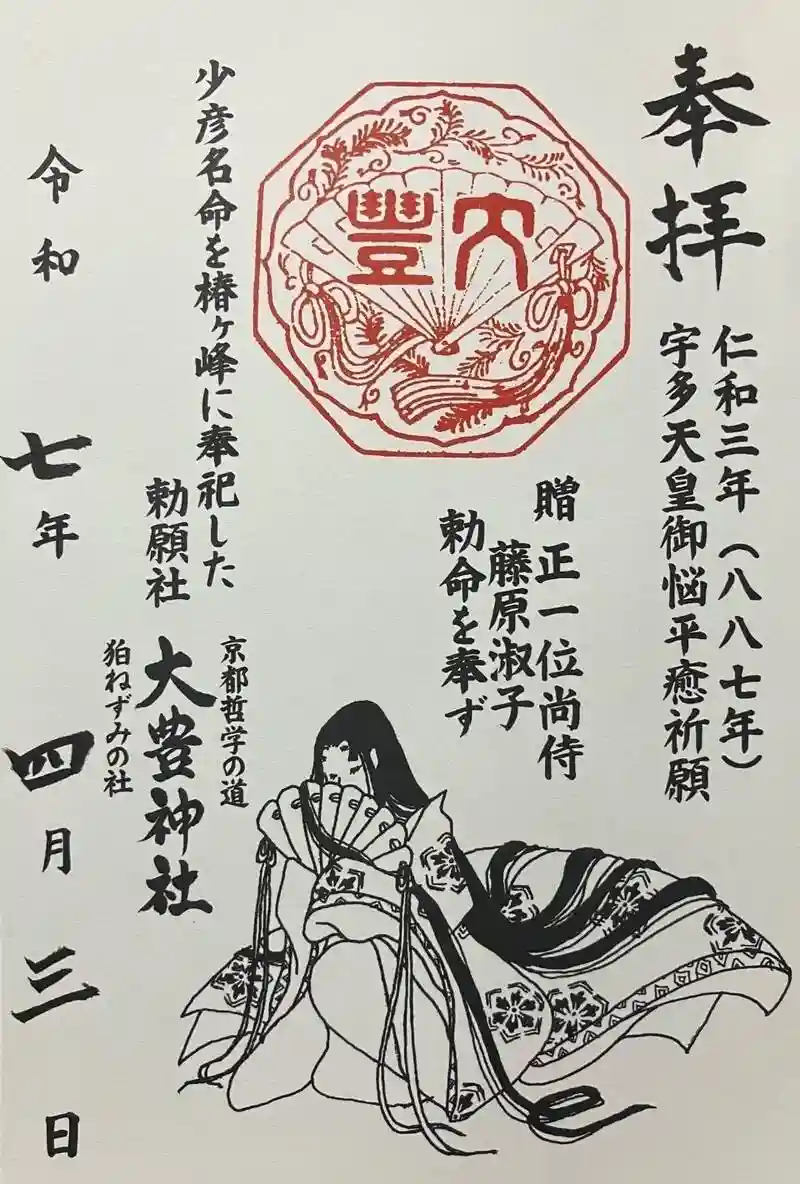 奉拝
仁和三年（八八七年）
宇多天皇御悩平癒祈願
贈 正一位尚侍
藤原淑子
勅命を奉ず
大豐
少彦名命を椿ヶ峰に奉祀した
勅願社
京都哲学の道
大豊神社
狛ねずみの社
令和七年四月三日